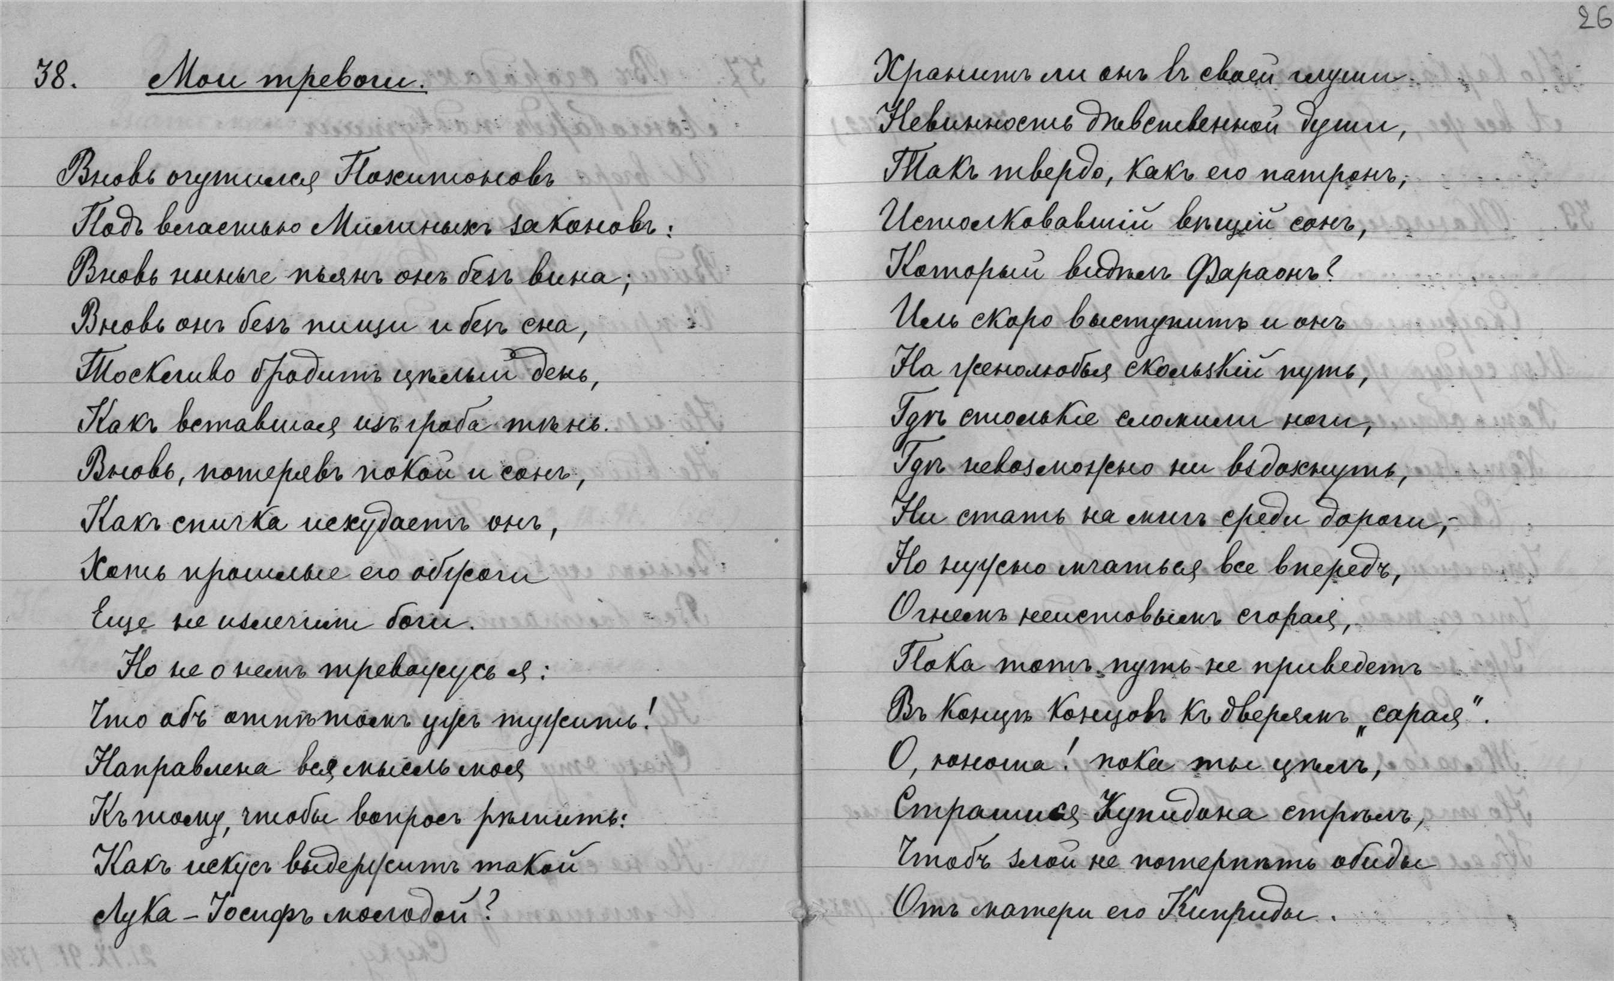 38. Мои тревоги.
Вновь очутился Похитоновъ
Подъ властью Милиныхъ законовъ:
Вновь нынче пьянъ онъ безъ вина;
Вновь онъ безъ пищи и безъ сна,
Тоскливо бродитъ цѣлый день,
Какъ вставшая изъ гроба тѣнь.
Вновь, потерявъ покой и сонъ,
Какъ спичка исхудаетъ онъ,
Хоть прошлые его обжоги
Еще не излечили боги.
Но не о немъ тревожусь я:
Что объ отпѣтомъ ужъ тужить!
Направлена вся мысль моя
Къ тому, чтобы вопросъ рѣшить:
Какъ искусъ выдержитъ такой
Лука – Іосифъ молодой?
26
Хранитъ ли онъ въ своей глуши
Невинность дѣвственной души,
Такъ твердо, какъ его патронъ,
Истолковавшій вѣщій сонъ,
Который видѣлъ Фараонъ?
Иль скоро выступитъ и онъ
На женолюбья скользкій путь,
Гдѣ столькіе сломили ноги,
Гдѣ невозможно ни вздохнуть,
Ни стать на мигъ среди дороги,–
Но нужно мчаться все впередъ,
Огнемъ неистовымъ сгорая,
Пока тотъ путь не приведетъ
Въ концѣ концовъ къ дверямъ „сарая“.
О, юноша! пока ты цѣлъ,
Страшися Купидона стрѣлъ,
Чтобъ злой не потерпѣть обиды
Отъ матери его Киприды.